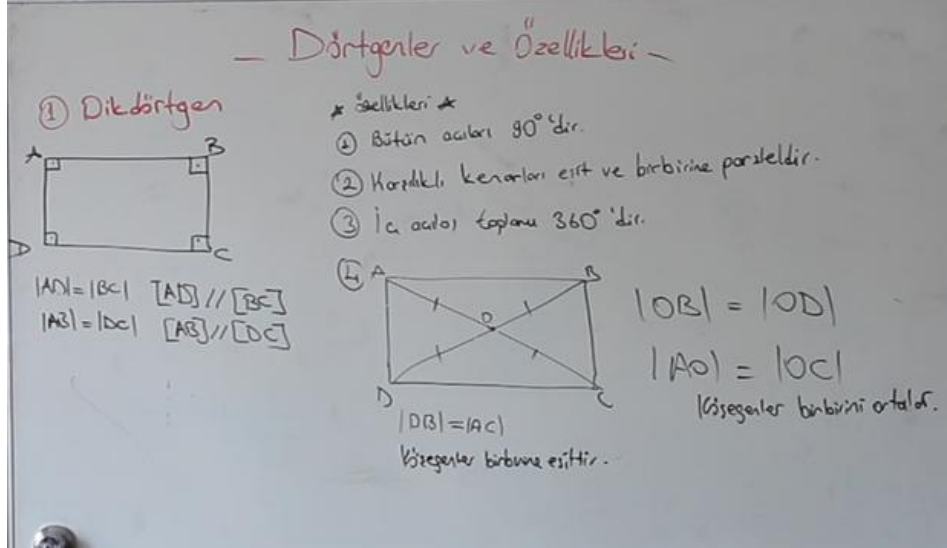 _ Dörtgenler ve Özellikleri -
① Dikdörtgen
A B
D C
|AD|=|BC| [AD]//[BC]
|AB|=|DC| [AB]//[DC]
* özellikleri *
① Bütün açıları 90°'dir.
② Karşılıklı kenarları eşit ve birbirine paraleldir.
③ İç açılar toplamı 360°'dir.
④ A B
O
D C
|DB|=|AC|
Köşegenler birbirine eşittir.
|OB| = |OD|
|AO| = |OC|
Köşegenler birbirini ortalar.